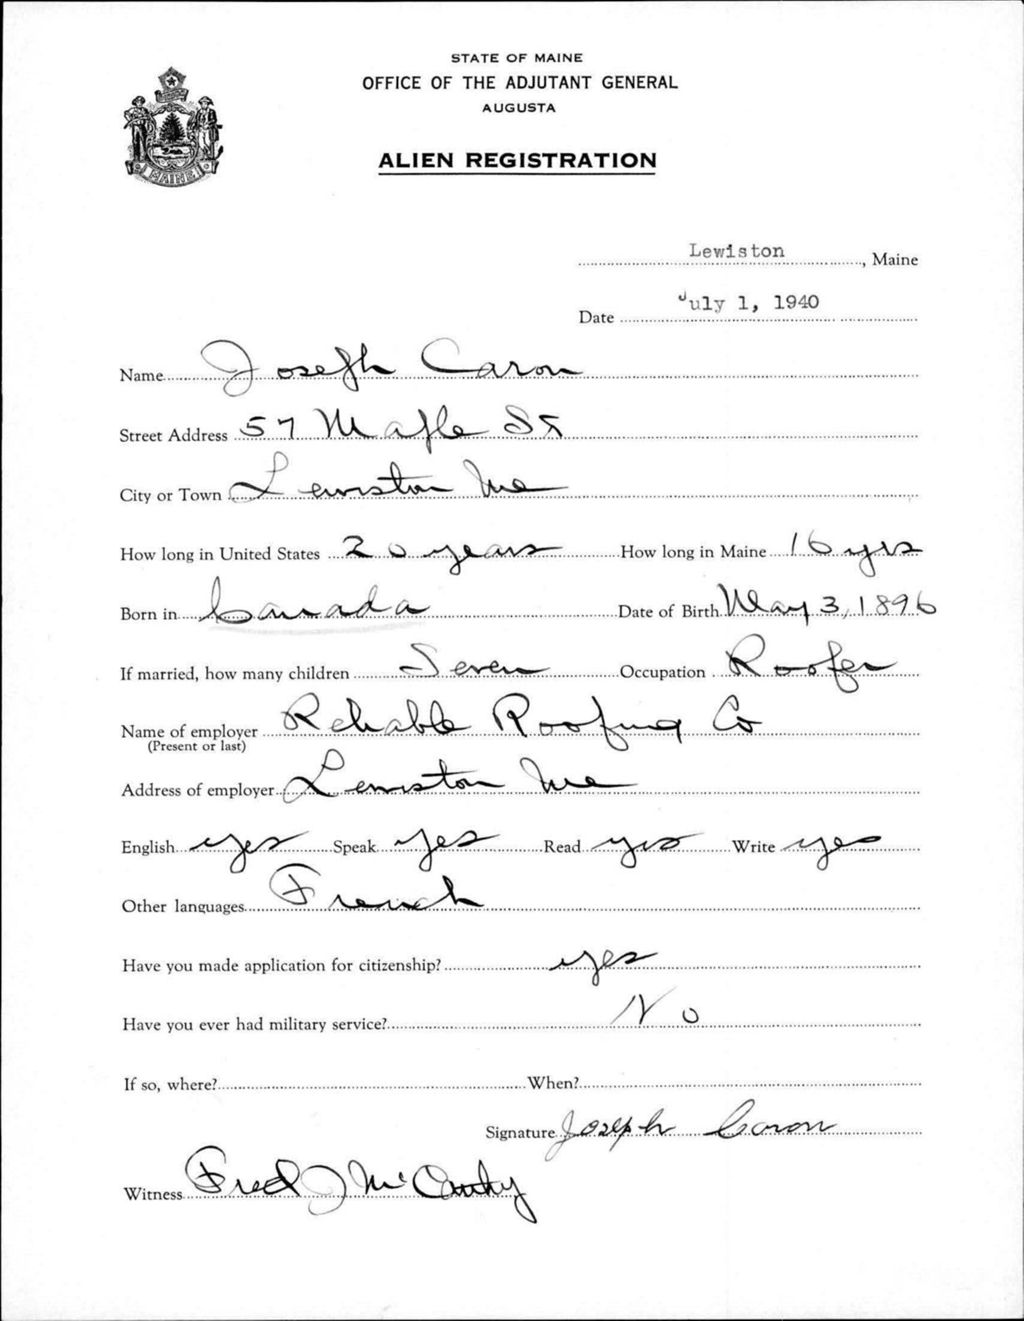 STATE OF MAINE
OFFICE OF THE ADJUTANT GENERAL
AUGUSTA
ALIEN REGISTRATION
MAINE
Lewiston, Maine
Date July 1, 1940
Name Joseph Caron
Street Address 57 Maple St
City or Town Lewiston Me
How long in United States 20 years How long in Maine 16 yrs
Born in Canada Date of Birth May 3, 1896
If married, how many children Seven Occupation Roofer
Name of employer Reliable Roofing Co
(Present or last)
Address of employer Lewiston Me
English yes Speak yes Read yes Write yes
Other languages French
Have you made application for citizenship? yes
Have you ever had military service? No
If so, where? When?
Signature Joseph Caron
Witness Fred J McCarthy